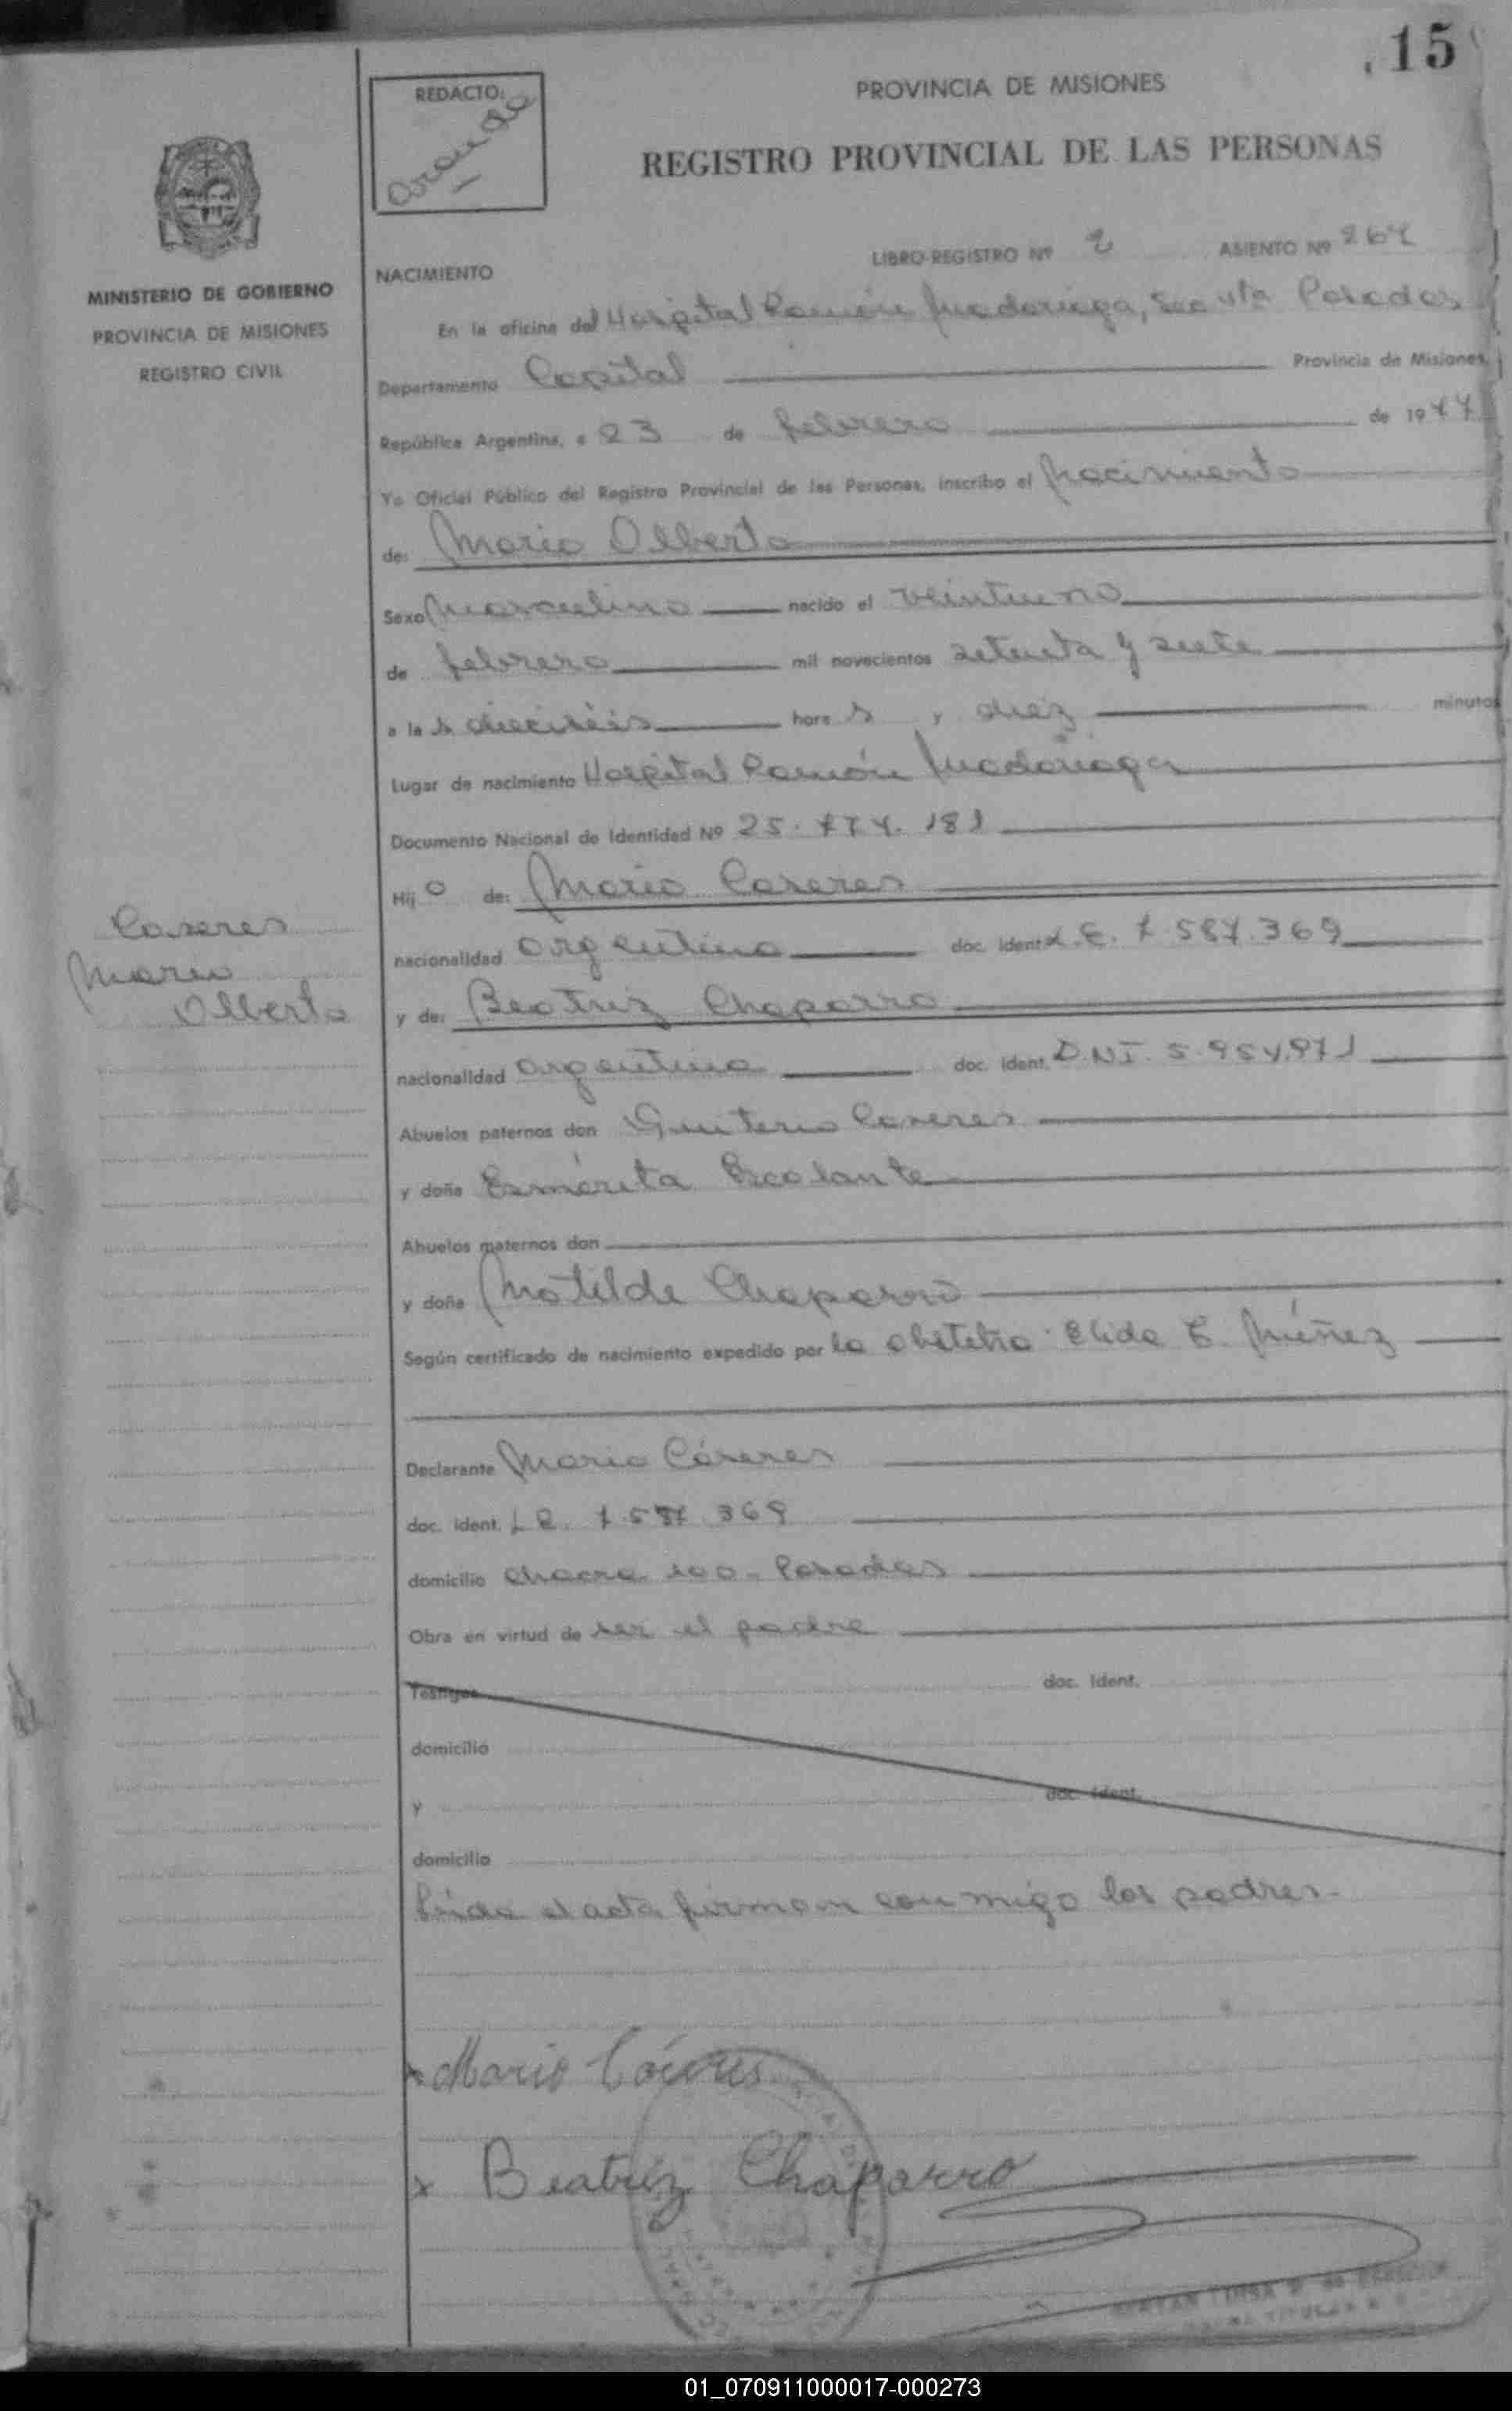 15
REDACTO:
PROVINCIA DE MISIONES
REGISTRO PROVINCIAL DE LAS PERSONAS
MINISTERIO DE GOBIERNO
PROVINCIA DE MISIONES
REGISTRO CIVIL
LIBRO-REGISTRO Nº 2 ASIENTO Nº
NACIMIENTO
En la oficina del Hospital Ramón Madariaga, Posadas
Departamento Capital Provincia de Misiones,
República Argentina, a 23 de febrero de 1977
Yo Oficial Público del Registro Provincial de las Personas, inscribo el nacimiento
de: Mario Alberto
Sexo masculino nacido el veintiuno
de febrero mil novecientos setenta y siete
a las dieciséis horas y diez minutos
Lugar de nacimiento Hospital Ramón Madariaga
Documento Nacional de Identidad Nº 25.
Hijo de: Mario Caseres
nacionalidad argentina doc. ident. L.E. 7.587.369
y de: Beatriz Chaparro
nacionalidad argentina doc. ident. D.N.I.
Abuelos paternos don Quiterio Caseres
y doña Esmérita Escalante
Abuelos maternos don
y doña Matilde Chaparro
Según certificado de nacimiento expedido por la obstetra Elida E. Núñez
Declarante Mario Cáseres
doc. ident. L.E. 7.587.369
domicilio chacra 100 - Posadas
Obra en virtud de ser el padre
Testigos doc. ident.
domicilio
y doc. ident.
domicilio
Leída el acta firman conmigo los padres.-
Caseres
Mario
Alberto
x Mario Cáceres
x Beatriz Chaparro
01_070911000017-000273